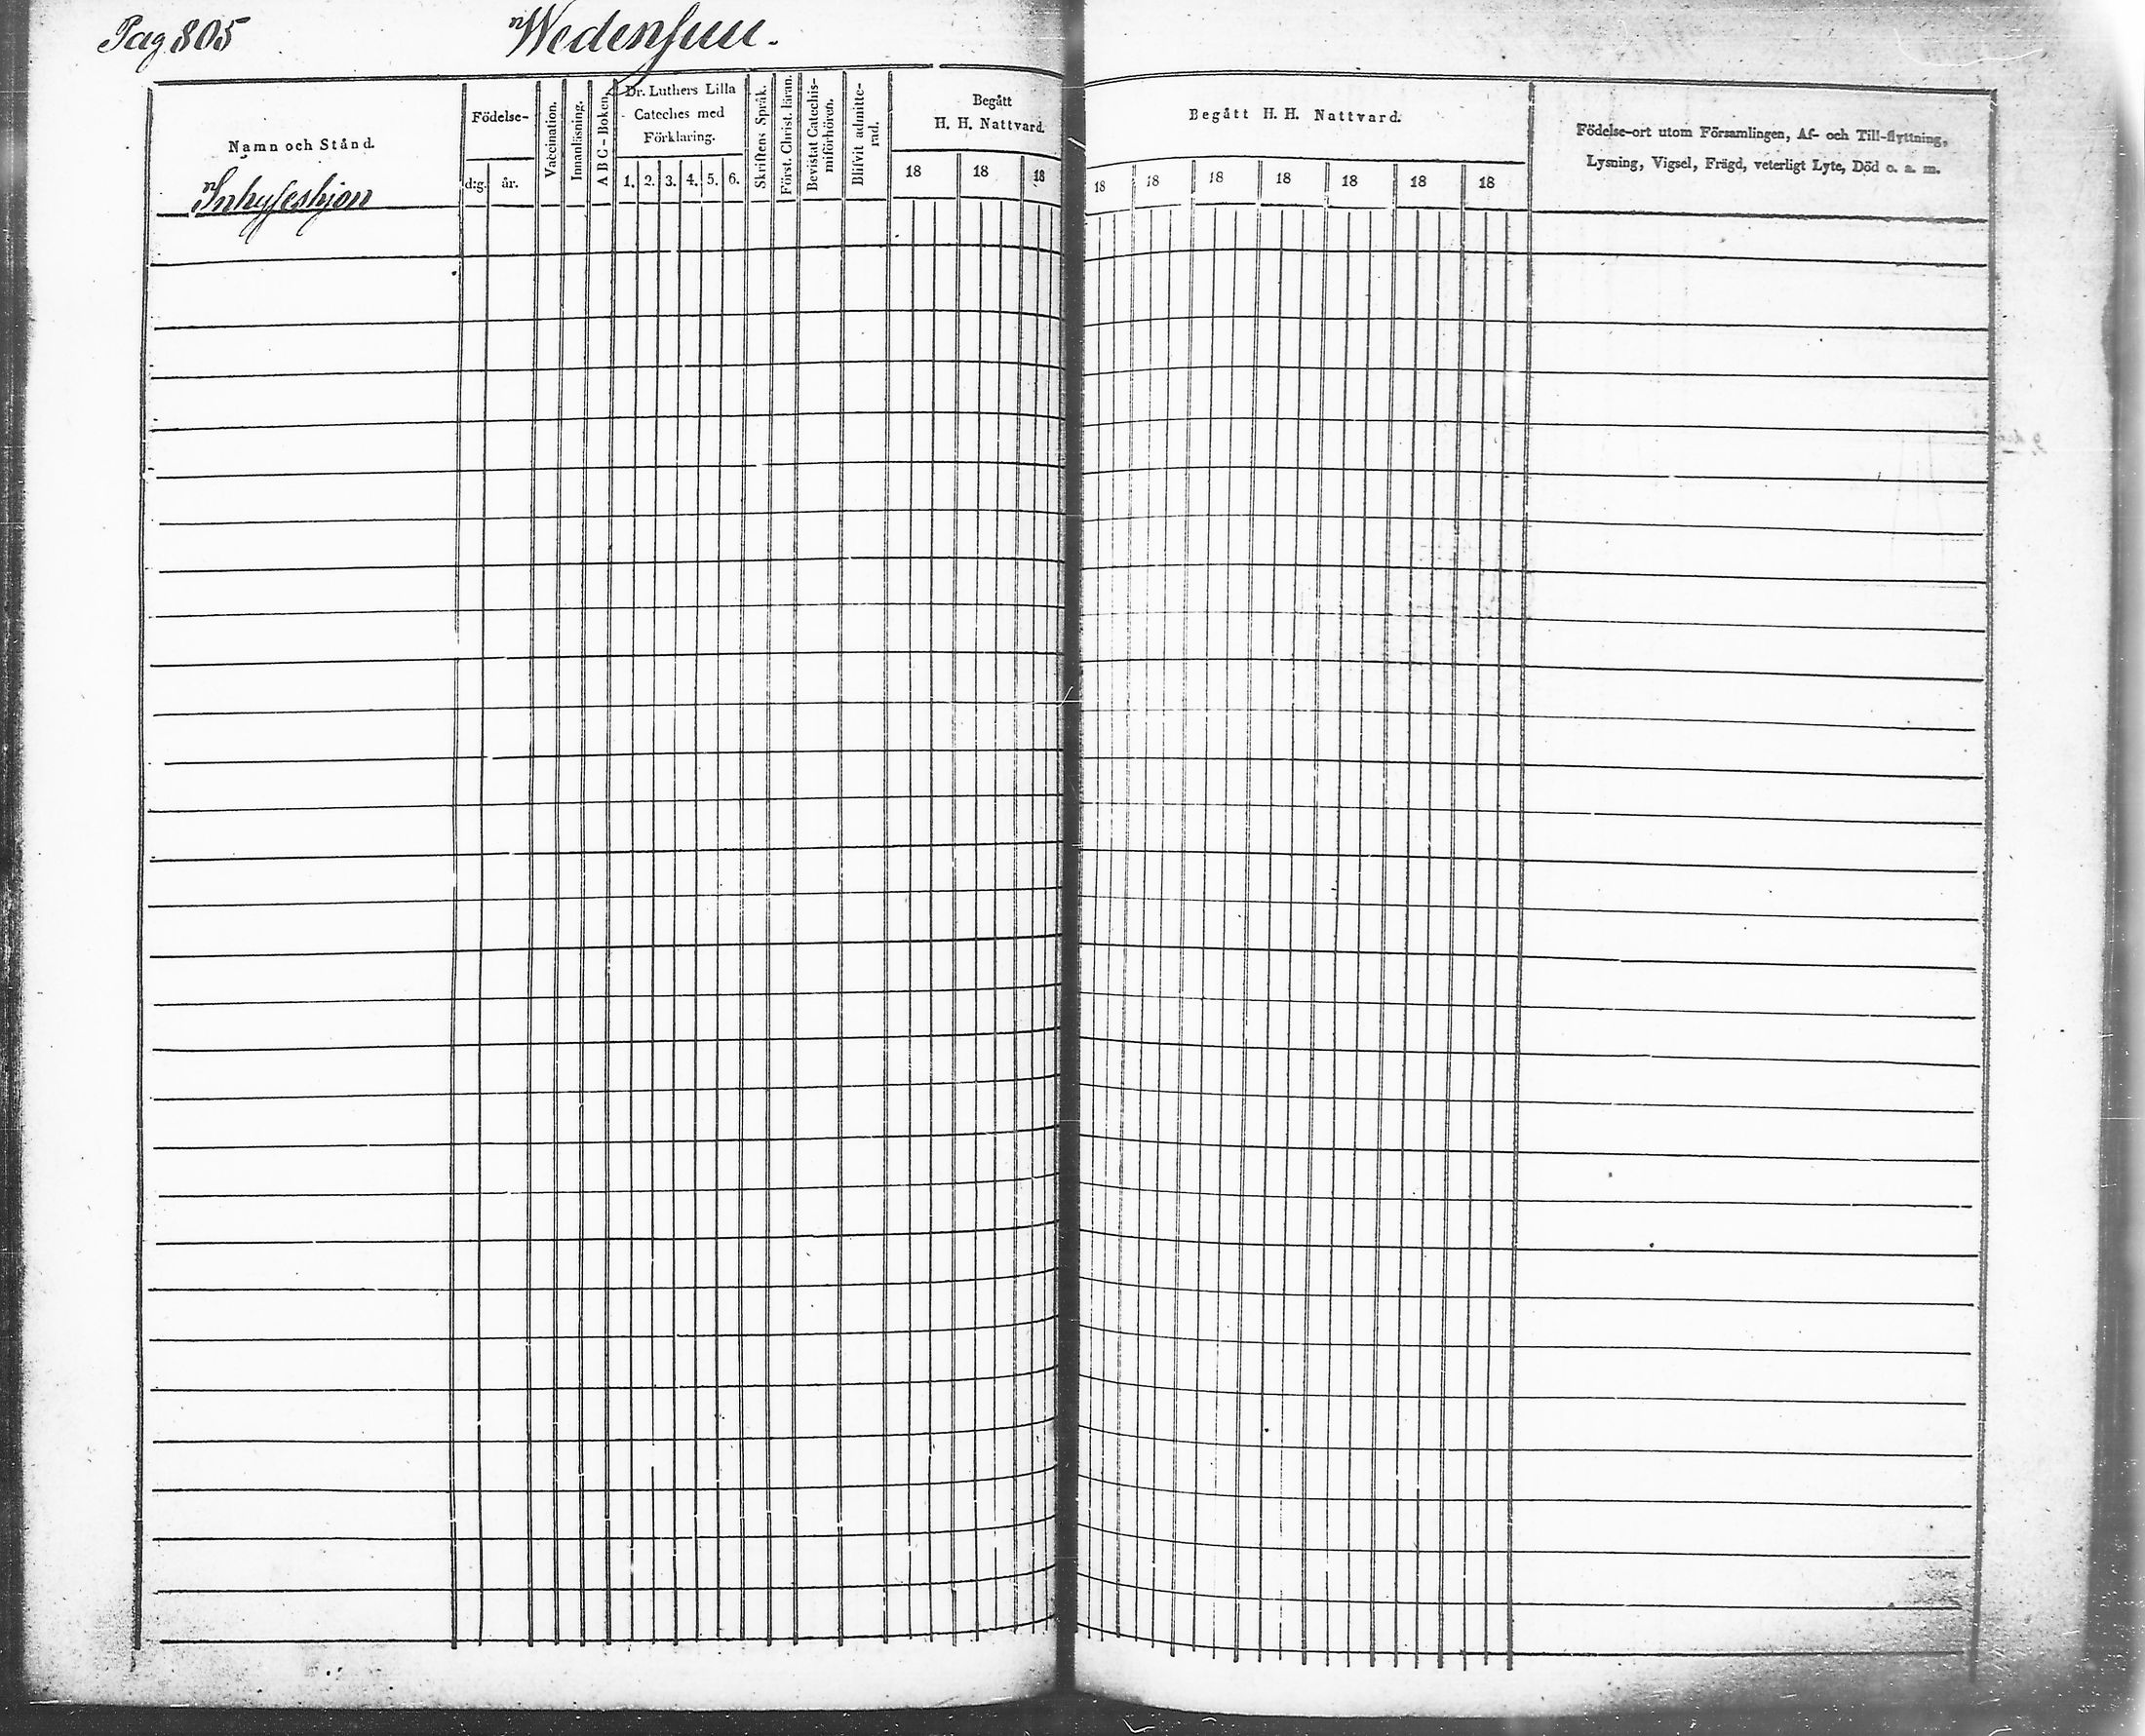 Pag 805
Wedensuu.
Namn och Stånd.
Inhyseshjon
Födelse-
dıg. år.
Vaccination.
Innanläsning.
A B C - Boken.
Dr. Luthers Lilla
Cateches med
Förklaring.
1. 2. 3. 4. 5. 6.
Skriftens Språk.
Först. Christ. läran.
Bevistat Catechis-
miförhören.
Blifvit admitte-
rad.
Begått
H. H. Nattvard.
18 18 18
Begått H. H. Nattvard.
18 18 18 18 18 18 18
Födelse-ort utom Församlingen, Af- och Till-flyttning,
Lysning, Vigsel, Frägd, veterligt Lyte, Död o. a. m.